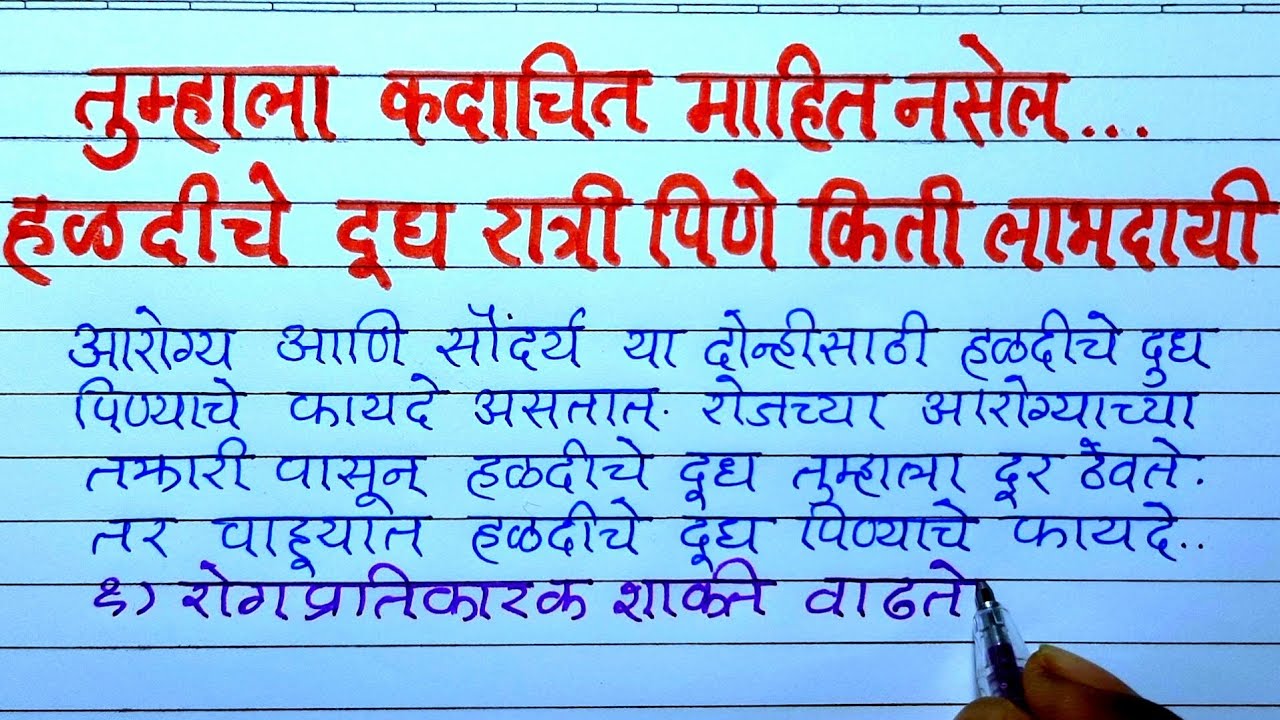 तुम्हाला कदाचित माहित नसेल...
हळदीचे दूध रात्री पिणे किती लाभदायी
आरोग्य आणि सौंदर्य या दोन्हीसाठी हळदीचे दुध
पिण्याचे फायदे असतात. रोजच्या आरोग्याच्या
तक्रारी पासून हळदीचे दूध तुम्हाला दूर ठेवते.
तर पाहूयात हळदीचे दूध पिण्याचे फायदे..
१) रोगप्रतिकारक शक्ती वाढते